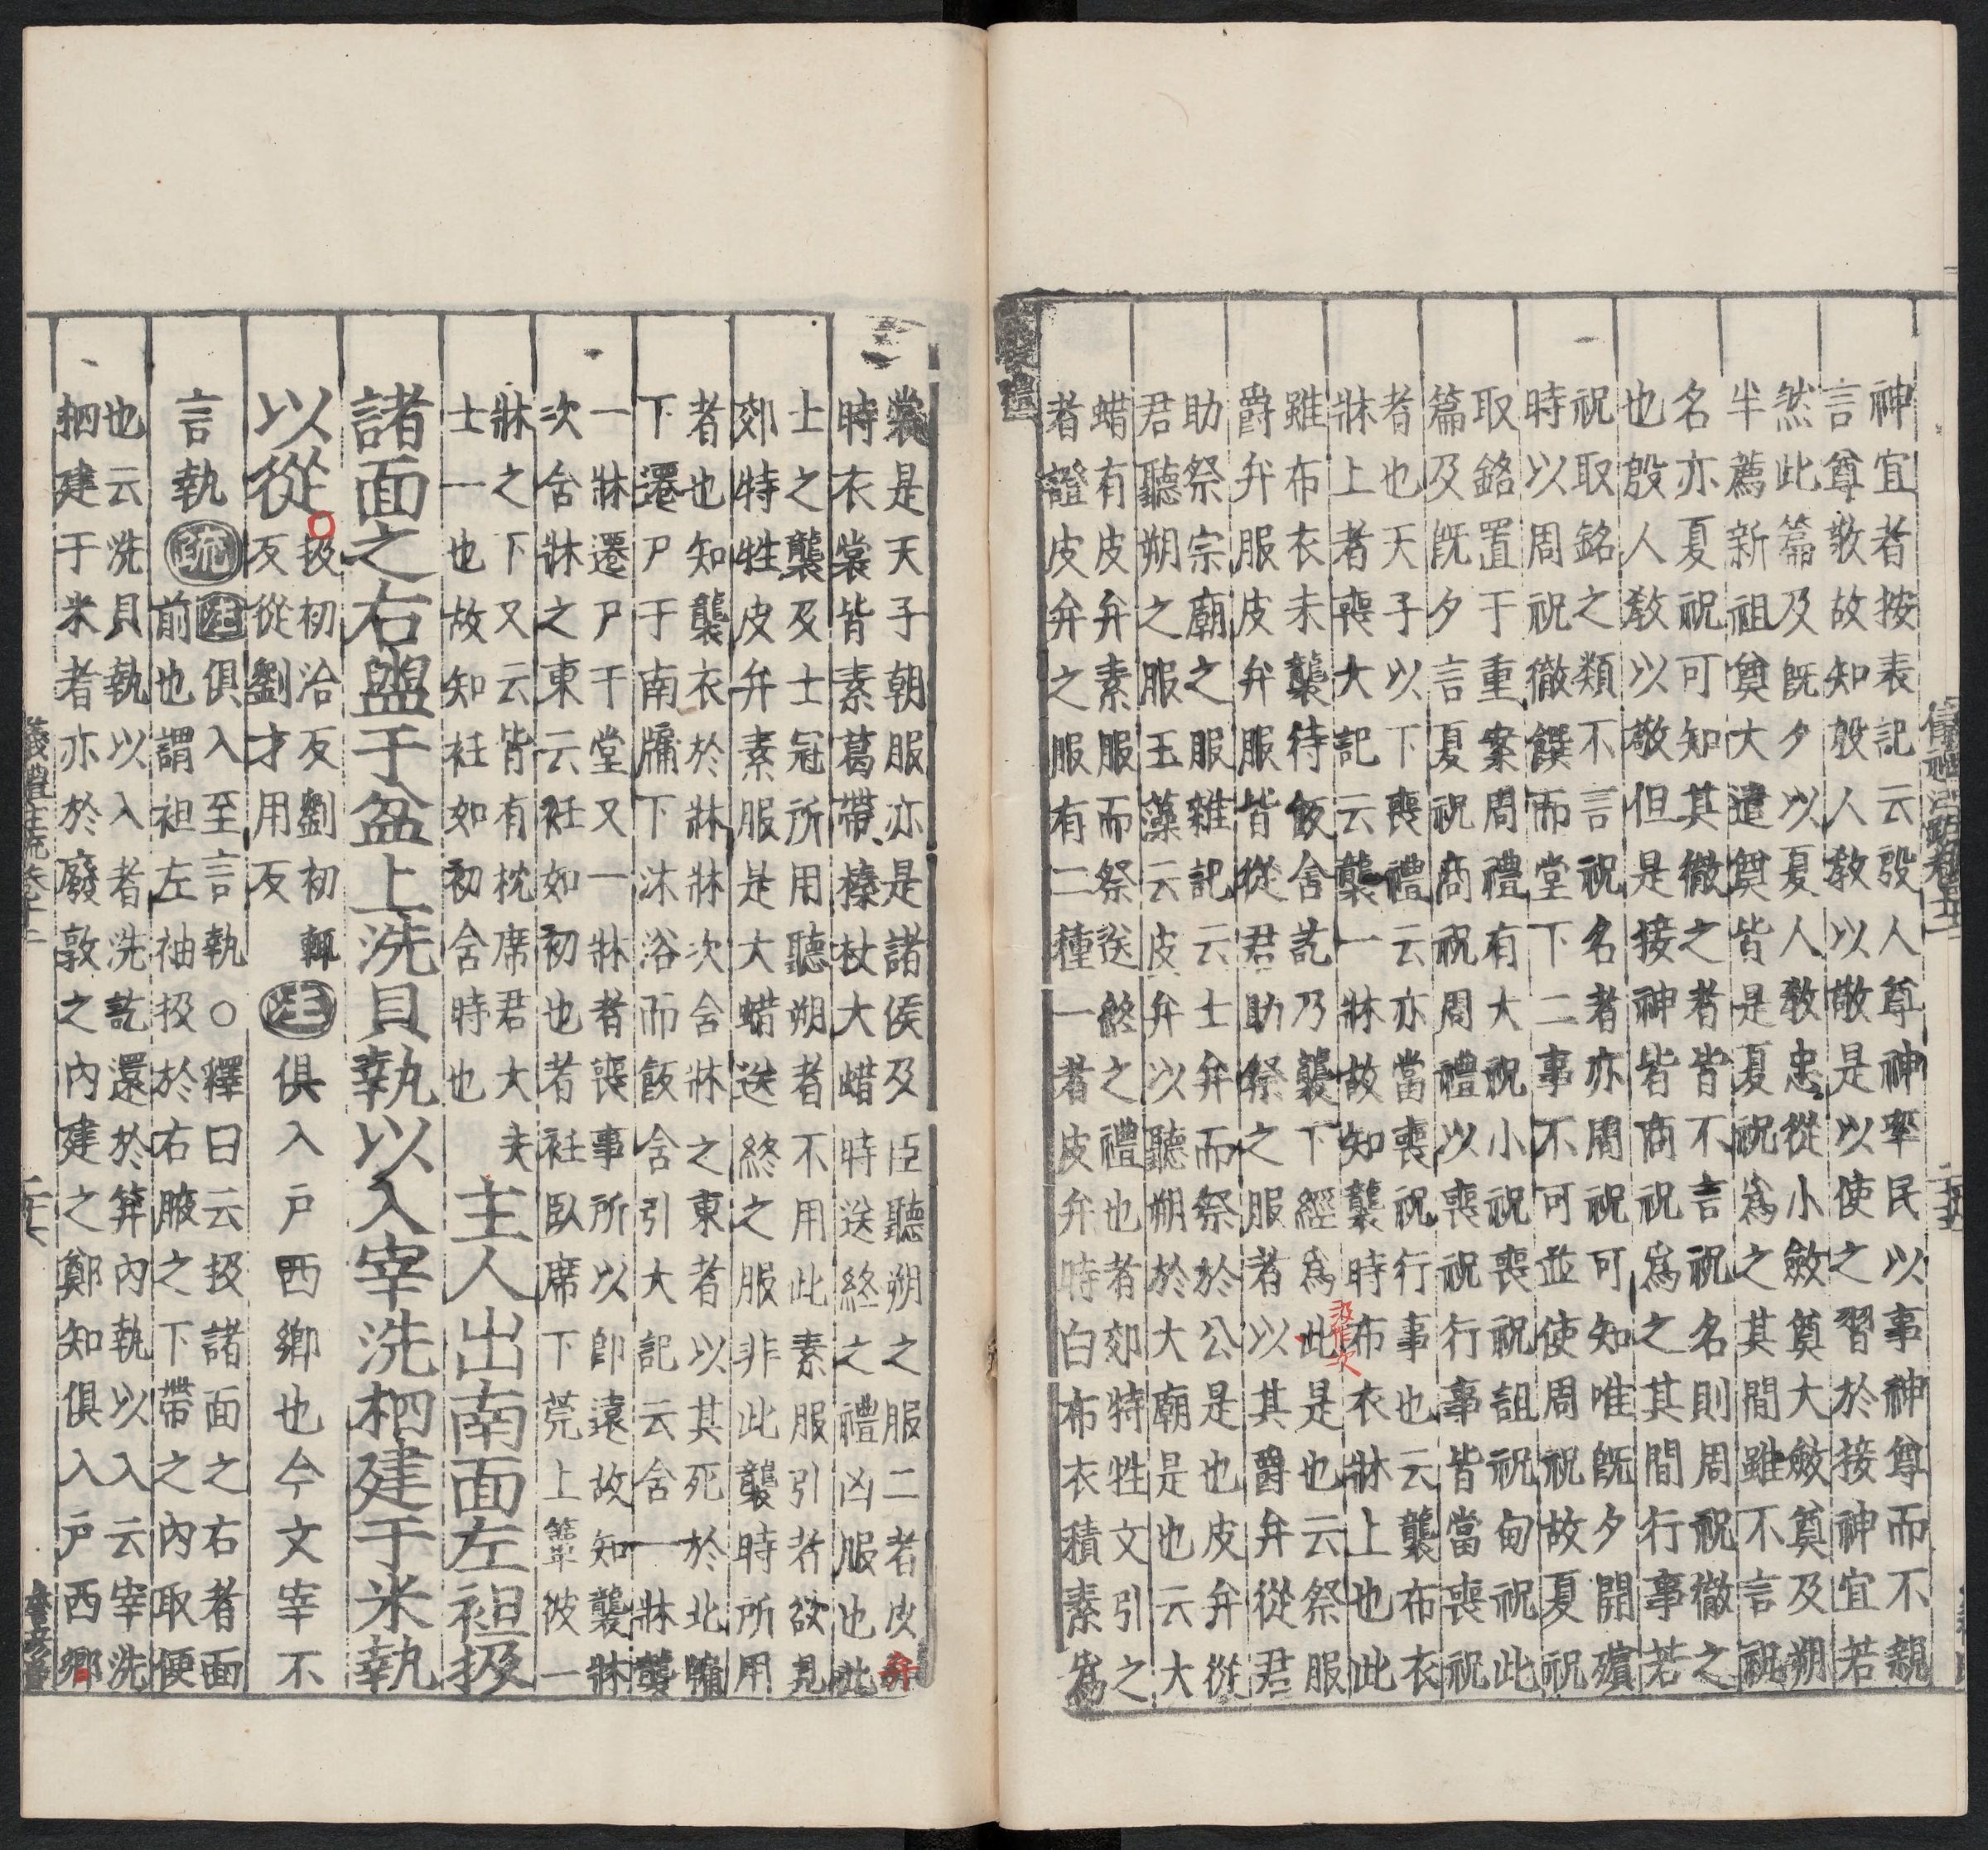 神宜者按表記云殷人尊神率民以事神尊而不親
言尊敬故知殷人教以敬是以使之習於接神宜若
然此篇及旣夕以夏人教忠從小斂奠大斂奠及朔
半薦新祖奠大遣奠皆是夏祝爲之其間雖不言祝
名亦夏祝可知其徹之者皆不言祝名則周祝徹之
也殷人教以敬但是接神皆商祝爲之其間行事若
祝取銘之類不言祝名者亦周祝可知唯旣夕開殯
時以周祝徹饌而堂下二事不可並使周祝故夏祝
取銘置于重案周禮有大祝小祝喪祝詛祝甸祝此
篇及旣夕言夏祝商祝周禮以喪祝行事皆當喪祝
者也天子以下喪禮云亦當喪祝行事也云襲布衣
牀上者喪大記云襲一牀故知襲時布衣牀上也此
雖布衣未襲待飯舍訖乃襲下經爲此是也云祭服
汲作次
爵弁服皮弁服皆從君助祭之服者以其爵弁從君
助祭宗廟之服雜記云士弁而祭於公是也皮弁從
君聽朔之服玉藻云皮弁以聽朔於大廟是也云大
蜡有皮弁素服而祭送終之禮也者郊特牲文引之
者證皮弁之服有二種一者皮弁時白布衣積素爲
裳是天子朝服亦是諸侯及臣聽朔之服二者皮弁
時衣裳皆素葛帶榛杖大蜡時送終之禮凶服也此
士之襲及士冠所用聽朔者不用此素服引者欲見
郊特牲皮弁素服是大蜡送終之服非此襲時所用
者也知襲衣於牀牀次舍牀之東者以其死於北牖
下遷尸于南牖下沐浴而飯舍引大記云舍一牀襲
一牀遷尸于堂又一牀者喪事所以卽遠故知襲牀
次舍牀之東云衽如初也者衽臥席下莞上簟彼一
牀之下又云皆有枕席君大夫
士一也故知衽如初舍時也
主人出南面左袒扱
諸面之右盥于盆上洗貝執以入宰洗柶建于米執
以從
扱初洽反劉初輒
反從劉才用反
注俱入戶西鄉也今文宰不
言執
疏注俱入至言執○釋曰云扱諸面之右者面
前也謂袒左袖扱於右腋之下帶之內取便
也云洗貝執以入者洗訖還於筭內執以入云宰洗
柶建于米者亦於廢敦之內建之鄭知俱入戶西鄉
儀禮注疏卷十二
二十六